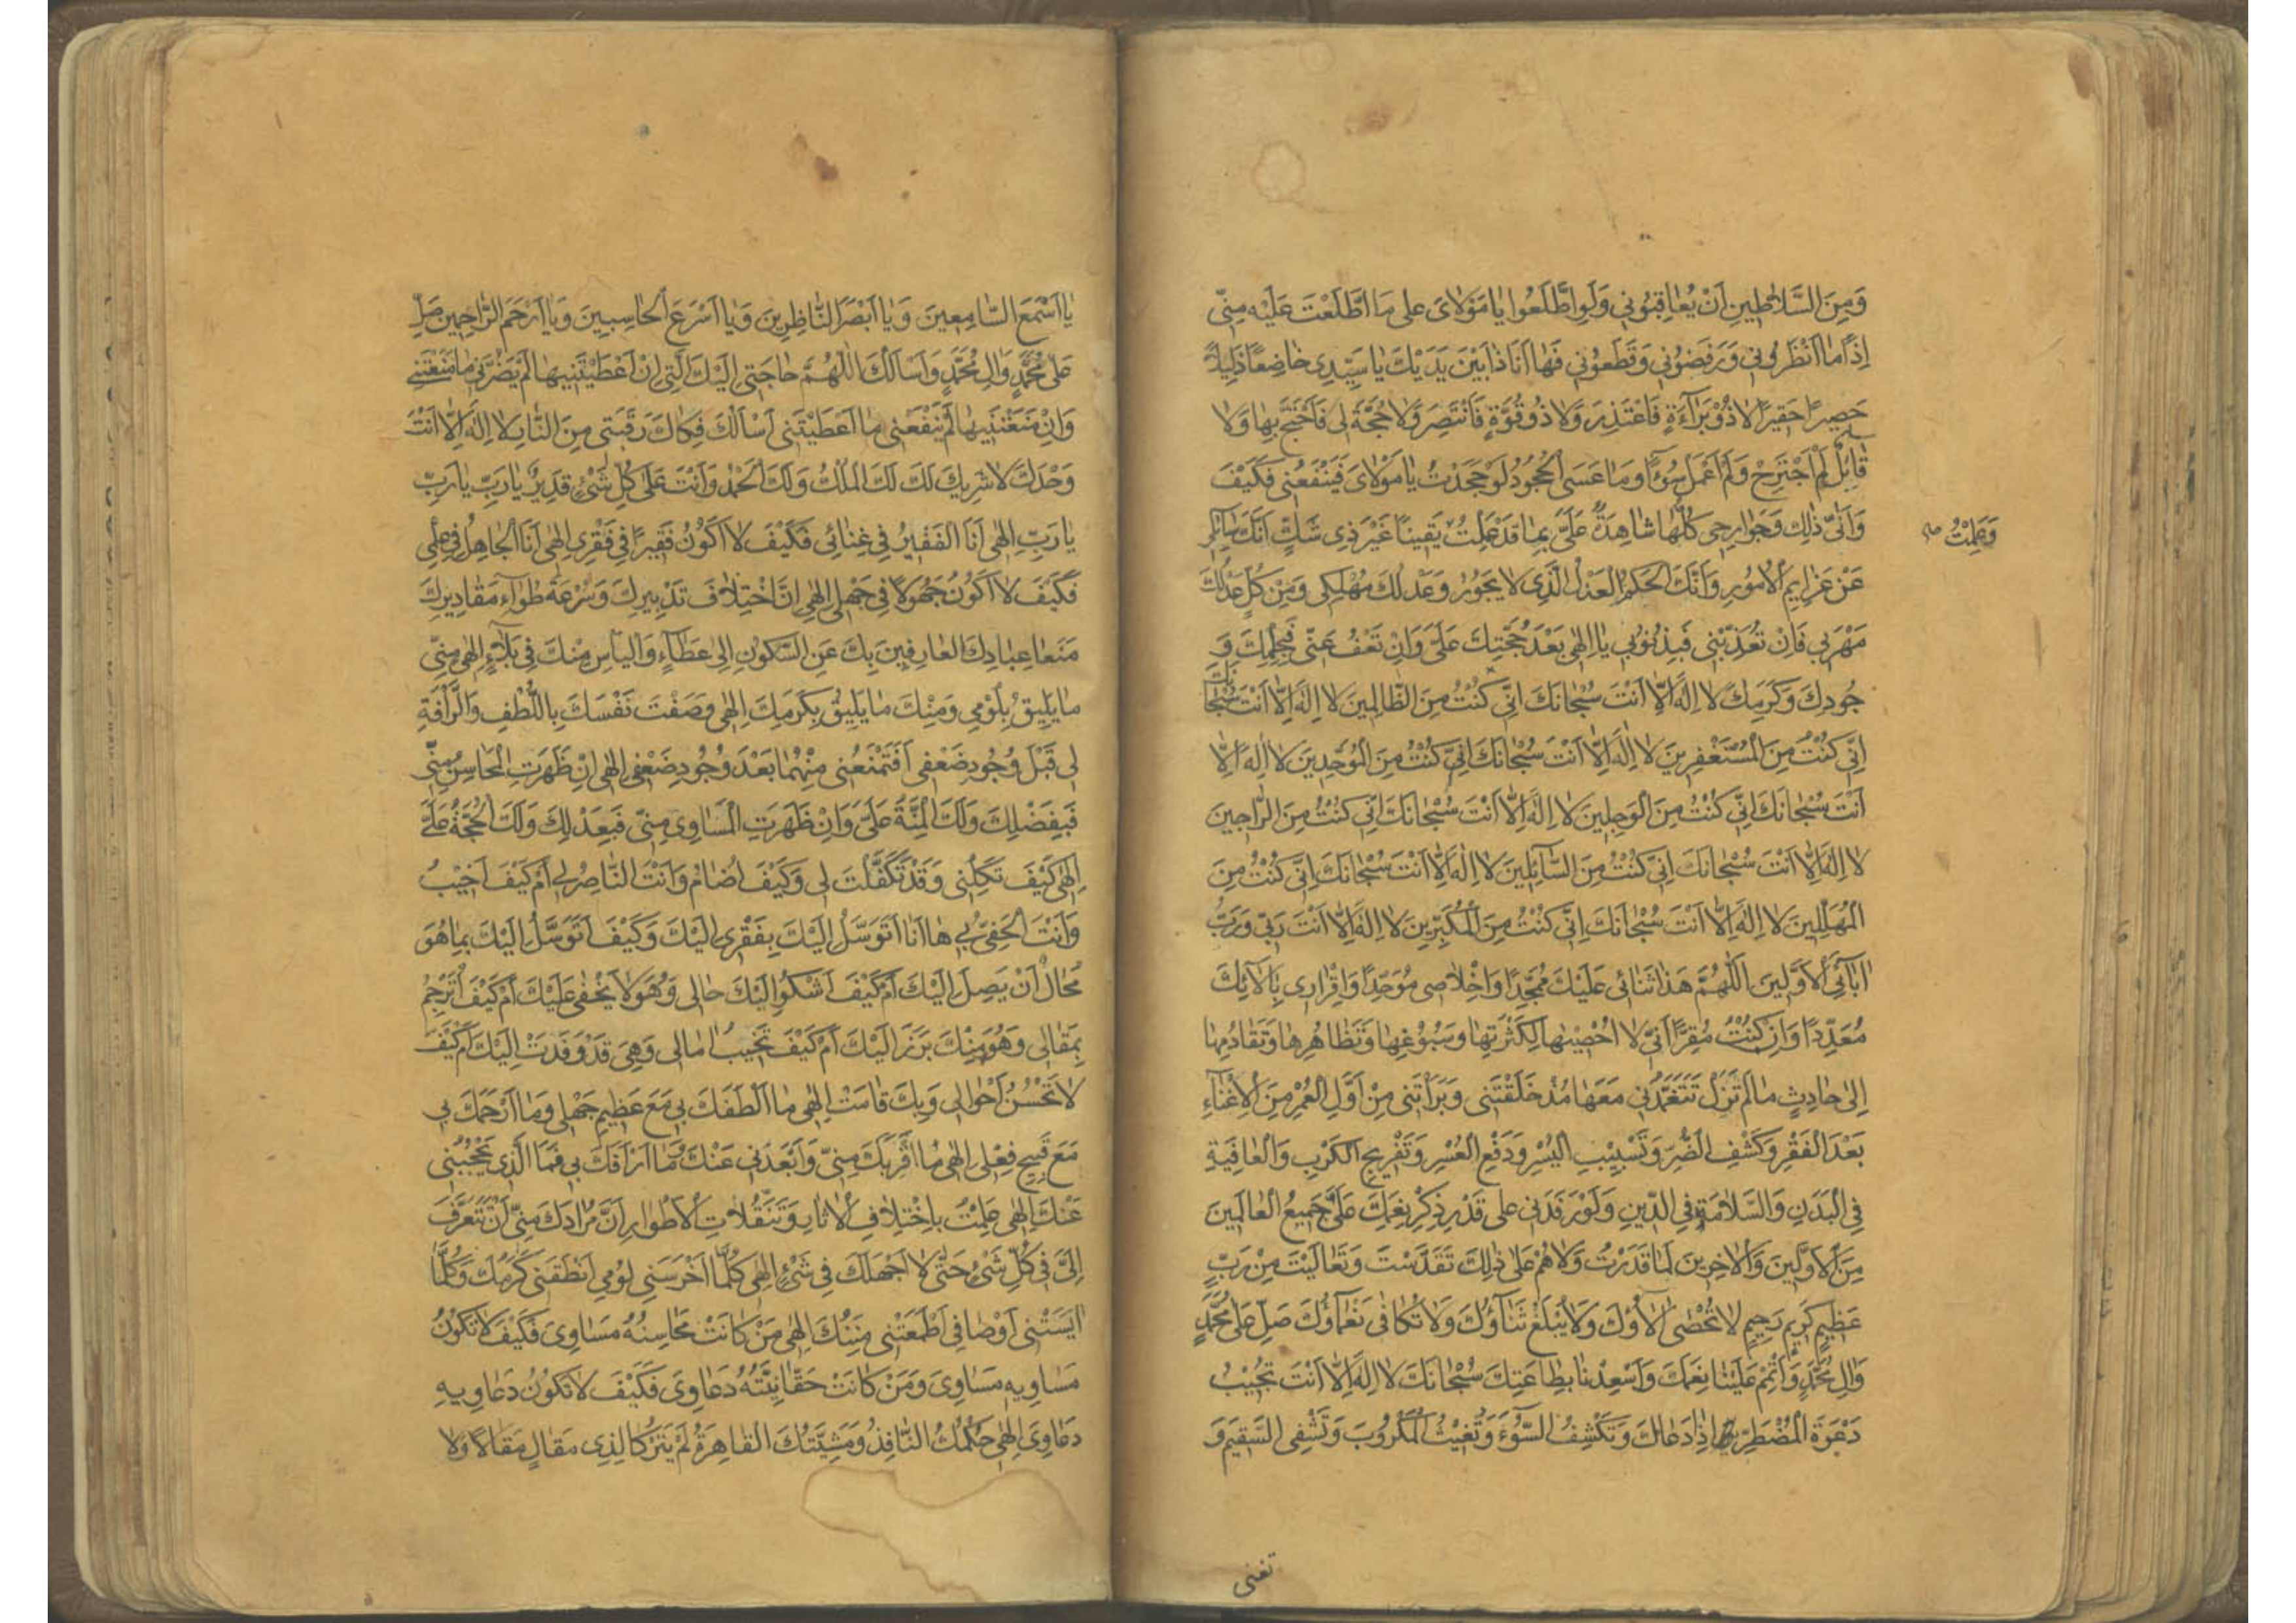 وَمِنَ السَّلَاطِينِ اَنْ يُعَاقِبُونِي وَلَوِ اطَّلَعُوا يَا مَوْلَايَ عَلى مَا اطَّلَعْتَ عَلَيْهِ مِنّى
اِذًا مَا اَنْظَرُونِي وَرَفَضُونِي وَقَطَعُونِي فَهَا اَنَا ذَا بَيْنَ يَدَيْكَ يَا سَيِّدِي خَاضِعًا ذَلِيلًا
حَصِيرًا حَقِيرًا لَا ذُو بَرَآءَةٍ فَاَعْتَذِرَ وَلَا ذُو قُوَّةٍ فَاَنْتَصِرَ وَلَا حُجَّةَ لِي فَاَحْتَجَّ بِهَا وَلَا
قَائِلٌ لَمْ اَجْتَرِحْ وَلَمْ اَعْمَلْ سُوءًا وَمَا عَسَى الْجُحُودُ لَوْ جَحَدْتُ يَا مَوْلَايَ فَيَنْفَعُنِي فَكَيْفَ
وَاَنّى ذٰلِكَ وَجَوَارِحِي كُلُّهَا شَاهِدَةٌ عَلَيَّ بِمَا قَدْ عَمِلْتُ يَقِينًا غَيْرَ ذِي شَكٍّ اَنَّكَ سَائِلِي
وَعَلِمْتُ
عَنْ عَزَايِمِ الْاُمُورِ وَاَنَّكَ الْحَكَمُ الْعَدْلُ الَّذِي لَا يَجُورُ وَعَدْلُكَ مُهْلِكِي وَمِنْ كُلِّ عَدْلِكَ
مَهْرَبِي فَاِنْ تُعَذِّبْنِي فَبِذُنُوبِي يَا اِلٰهِي بَعْدَ حُجَّتِكَ عَلَيَّ وَاِنْ تَعْفُ عَنّى فَبِحِلْمِكَ وَ
جُودِكَ وَكَرَمِكَ لَا اِلٰهَ اِلَّا اَنْتَ سُبْحَانَكَ اِنِّي كُنْتُ مِنَ الظَّالِمِينَ لَا اِلٰهَ اِلَّا اَنْتَ سُبْحَانَكَ
اِنِّي كُنْتُ مِنَ الْمُسْتَغْفِرِينَ لَا اِلٰهَ اِلَّا اَنْتَ سُبْحَانَكَ اِنِّي كُنْتُ مِنَ الْمُوَحِّدِينَ لَا اِلٰهَ اِلَّا
اَنْتَ سُبْحَانَكَ اِنِّي كُنْتُ مِنَ الْوَجِلِينَ لَا اِلٰهَ اِلَّا اَنْتَ سُبْحَانَكَ اِنِّي كُنْتُ مِنَ الرَّاجِينَ
لَا اِلٰهَ اِلَّا اَنْتَ سُبْحَانَكَ اِنِّي كُنْتُ مِنَ السَّآئِلِينَ لَا اِلٰهَ اِلَّا اَنْتَ سُبْحَانَكَ اِنِّي كُنْتُ مِنَ
الْمُهَلِّلِينَ لَا اِلٰهَ اِلَّا اَنْتَ سُبْحَانَكَ اِنِّي كُنْتُ مِنَ الْمُكَبِّرِينَ لَا اِلٰهَ اِلَّا اَنْتَ رَبِّي وَرَبُّ
اٰبَآئِيَ الْاَوَّلِينَ اَللّٰهُمَّ هَذَا ثَنَائِي عَلَيْكَ مُمَجِّدًا وَاِخْلَاصِي مُوَحِّدًا وَاِقْرَارِي بِاٰلَائِكَ
مُعَدِّدًا وَاِنْ كُنْتُ مُقِرًّا اَنّى لَا اُحْصِيهَا لِكَثْرَتِهَا وَسُبُوغِهَا وَتَظَاهُرِهَا وَتَقَادُمِهَا
اِلٰى حَادِثٍ مَا لَمْ تَزَلْ تَتَغَمَّدُنِي مَعَهَا مُذْ خَلَقْتَنِي وَبَرَأْتَنِي مِنْ اَوَّلِ الْعُمْرِ مِنَ الْاِغْنَآءِ
بَعْدَ الْفَقْرِ وَكَشْفِ الضُّرِّ وَتَسْبِيبِ الْيُسْرِ وَدَفْعِ الْعُسْرِ وَتَفْرِيجِ الْكَرْبِ وَالْعَافِيَةِ
فِي الْبَدَنِ وَالسَّلَامَةِ فِي الدِّينِ وَلَوْ رَفَدَنِي عَلى قَدْرِ ذِكْرِ نِعَمِكَ عَلَيَّ جَمِيعُ الْعَالَمِينَ
مِنَ الْاَوَّلِينَ وَالْاٰخِرِينَ لَمَا قَدَرْتُ وَلَا هُمْ عَلى ذٰلِكَ تَقَدَّسْتَ وَتَعَالَيْتَ مِنْ رَبٍّ
عَظِيمٍ كَرِيمٍ رَحِيمٍ لَا تُحْصٰى اٰلَآؤُكَ وَلَا يُبْلَغُ ثَنَآؤُكَ وَلَا تُكَافٰى نَعْمَآؤُكَ صَلِّ عَلى مُحَمَّدٍ
وَاٰلِ مُحَمَّدٍ وَاَتْمِمْ عَلَيْنَا نِعَمَكَ وَاَسْعِدْنَا بِطَاعَتِكَ سُبْحَانَكَ لَا اِلٰهَ اِلَّا اَنْتَ تُجِيبُ
دَعْوَةَ الْمُضْطَرِّ اِذَا دَعَاكَ وَتَكْشِفُ السُّوٓءَ وَتُغِيثُ الْمَكْرُوبَ وَتَشْفِي السَّقِيمَ وَ
تغنى
يَا اَسْمَعَ السَّامِعِينَ وَيَا اَبْصَرَ النَّاظِرِينَ وَيَا اَسْرَعَ الْحَاسِبِينَ وَيَا اَرْحَمَ الرَّاحِمِينَ صَلِّ
عَلى مُحَمَّدٍ وَاٰلِ مُحَمَّدٍ وَاَسْاَلُكَ اللّٰهُمَّ حَاجَتِي اِلَيْكَ الَّتِي اِنْ اَعْطَيْتَنِيهَا لَمْ يَضُرَّنِي مَا مَنَعْتَنِي
وَاِنْ مَنَعْتَنِيهَا لَمْ يَنْفَعْنِي مَا اَعْطَيْتَنِي اَسْاَلُكَ فَكَاكَ رَقَبَتِي مِنَ النَّارِ لَا اِلٰهَ اِلَّا اَنْتَ
وَحْدَكَ لَا شَرِيكَ لَكَ لَكَ الْمُلْكُ وَلَكَ الْحَمْدُ وَاَنْتَ عَلى كُلِّ شَيْءٍ قَدِيرٌ يَا رَبِّ يَا رَبِّ
يَا رَبِّ اِلٰهِي اَنَا الْفَقِيرُ فِي غِنَائِي فَكَيْفَ لَا اَكُونُ فَقِيرًا فِي فَقْرِي اِلٰهِي اَنَا الْجَاهِلُ فِي عِلْمِي
فَكَيْفَ لَا اَكُونُ جَهُولًا فِي جَهْلِي اِلٰهِي اِنَّ اخْتِلَافَ تَدْبِيرِكَ وَسُرْعَةَ طَوَآءِ مَقَادِيرِكَ
مَنَعَا عِبَادَكَ الْعَارِفِينَ بِكَ عَنِ السُّكُونِ اِلٰى عَطَآءٍ وَالْيَأْسِ مِنْكَ فِي بَلَآءٍ اِلٰهِي مِنّى
مَا يَلِيقُ بِلُؤْمِي وَمِنْكَ مَا يَلِيقُ بِكَرَمِكَ اِلٰهِي وَصَفْتَ نَفْسَكَ بِاللُّطْفِ وَالرَّاْفَةِ
لِي قَبْلَ وُجُودِ ضَعْفِي اَفَتَمْنَعُنِي مِنْهُمَا بَعْدَ وُجُودِ ضَعْفِي اِلٰهِي اِنْ ظَهَرَتِ الْمَحَاسِنُ مِنّى
فَبِفَضْلِكَ وَلَكَ الْمِنَّةُ عَلَيَّ وَاِنْ ظَهَرَتِ الْمَسَاوِي مِنّى فَبِعَدْلِكَ وَلَكَ الْحُجَّةُ عَلَيَّ
اِلٰهِي كَيْفَ تَكِلُنِي وَقَدْ تَكَفَّلْتَ لِي وَكَيْفَ اُضَامُ وَاَنْتَ النَّاصِرُ لِي اَمْ كَيْفَ اَخِيبُ
وَاَنْتَ الْحَفِيُّ بِي هَا اَنَا اَتَوَسَّلُ اِلَيْكَ بِفَقْرِي اِلَيْكَ وَكَيْفَ اَتَوَسَّلُ اِلَيْكَ بِمَا هُوَ
مُحَالٌ اَنْ يَصِلَ اِلَيْكَ اَمْ كَيْفَ اَشْكُو اِلَيْكَ حَالِي وَهُوَ لَا يَخْفٰى عَلَيْكَ اَمْ كَيْفَ اُتَرْجِمُ
بِمَقَالِي وَهُوَ مِنْكَ بَرَزَ اِلَيْكَ اَمْ كَيْفَ تَخِيبُ اٰمَالِي وَهِيَ قَدْ وَفَدَتْ اِلَيْكَ اَمْ كَيْفَ
لَا تَحْسُنُ اَحْوَالِي وَبِكَ قَامَتْ اِلٰهِي مَا اَلْطَفَكَ بِي مَعَ عَظِيمِ جَهْلِي وَمَا اَرْحَمَكَ بِي
مَعَ قَبِيحِ فِعْلِي اِلٰهِي مَا اَقْرَبَكَ مِنّى وَاَبْعَدَنِي عَنْكَ وَمَا اَرْاَفَكَ بِي فَمَا الَّذِي يَحْجُبُنِي
عَنْكَ اِلٰهِي عَلِمْتُ بِاخْتِلَافِ الْاٰثَارِ وَتَنَقُّلَاتِ الْاَطْوَارِ اَنَّ مُرَادَكَ مِنّى اَنْ تَتَعَرَّفَ
اِلَيَّ فِي كُلِّ شَيْءٍ حَتّى لَا اَجْهَلَكَ فِي شَيْءٍ اِلٰهِي كُلَّمَا اَخْرَسَنِي لُؤْمِي اَنْطَقَنِي كَرَمُكَ وَكُلَّمَا
اٰيَسَتْنِي اَوْصَافِي اَطْمَعَتْنِي مِنَنُكَ اِلٰهِي مَنْ كَانَتْ مَحَاسِنُهُ مَسَاوِيَ فَكَيْفَ لَا تَكُونُ
مَسَاوِيهِ مَسَاوِيَ وَمَنْ كَانَتْ حَقَّانِيَّتُهُ دَعَاوِيَ فَكَيْفَ لَا تَكُونُ دَعَاوِيهِ
دَعَاوِيَ اِلٰهِي حُكْمُكَ النَّافِذُ وَمَشِيَّتُكَ الْقَاهِرَةُ لَمْ يَتْرُكَا لِذِي مَقَالٍ مَقَالًا وَلَا